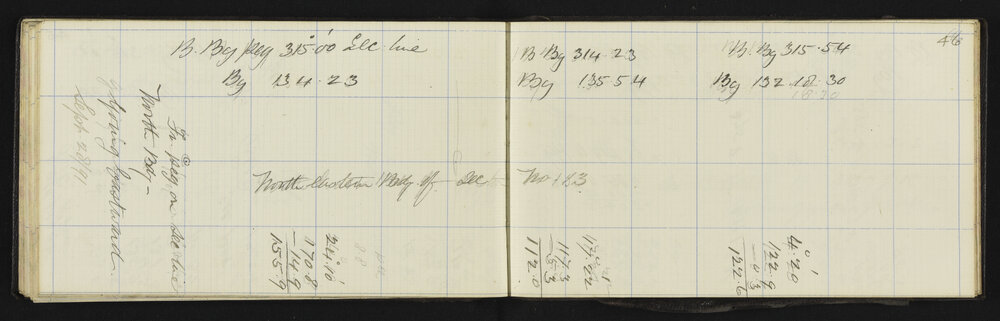 B. Bg peg 315°00' Sec line
Bg 134.23
Fr. peg on Sec line
North Bdy —
going Eastward.
Sept 28/91
North Eastern Bdy of Sec
24°.10'
170.8
-14.9
155.9
46
B. Bg 314.23
Bg 135 54
B. Bg 315.54
Bg 132.18.30
18.30
No 123
17°.22'
117.3
-5.3
112.0
4°.20'
122.9
-0.3
122.6